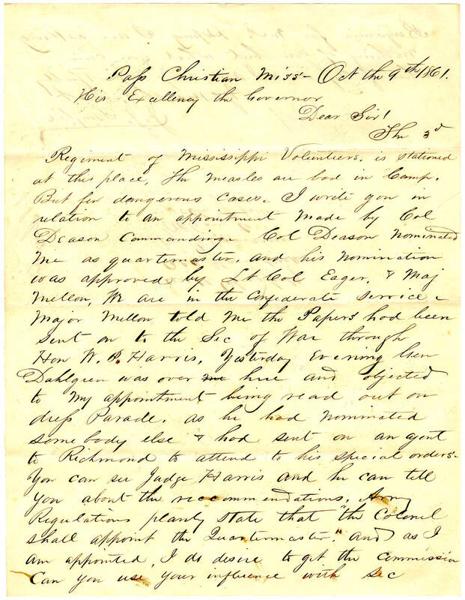 Pass Christian Miss - Oct the 9th 1861.
His Excellency the Governor
Dear Sir!
The 3d
Regiment of Mississippi Volunteers is stationed
at this place, The Measles are bad in Camp.
But few dangerous cases. I write you in
relation to an appointment made by Col
Deason Commanding. Col Deason nominated
Me as quartermaster, and his nomination
was approved by Lt Col Eager, & Maj
Mellon, We are in the Confederate Service -
Major Mellon told Me the Papers had been
sent on to the Sec of War through
Hon W. P. Harris, Yesterday Evening Gen
Dahlgren was over here and objected
to My appointment being read out on
dress Parade, as he had nominated
somebody else & had sent on an agent
to Richmond to attend to his special orders-
You can see Judge Harris and he can tell
you about the reccommendations, Army
Regulations plainly state that "the Colonel
shall appoint the Quartermaster." and as I
am appointed, I do desire to get the Commission
Can you use your influence with Sec